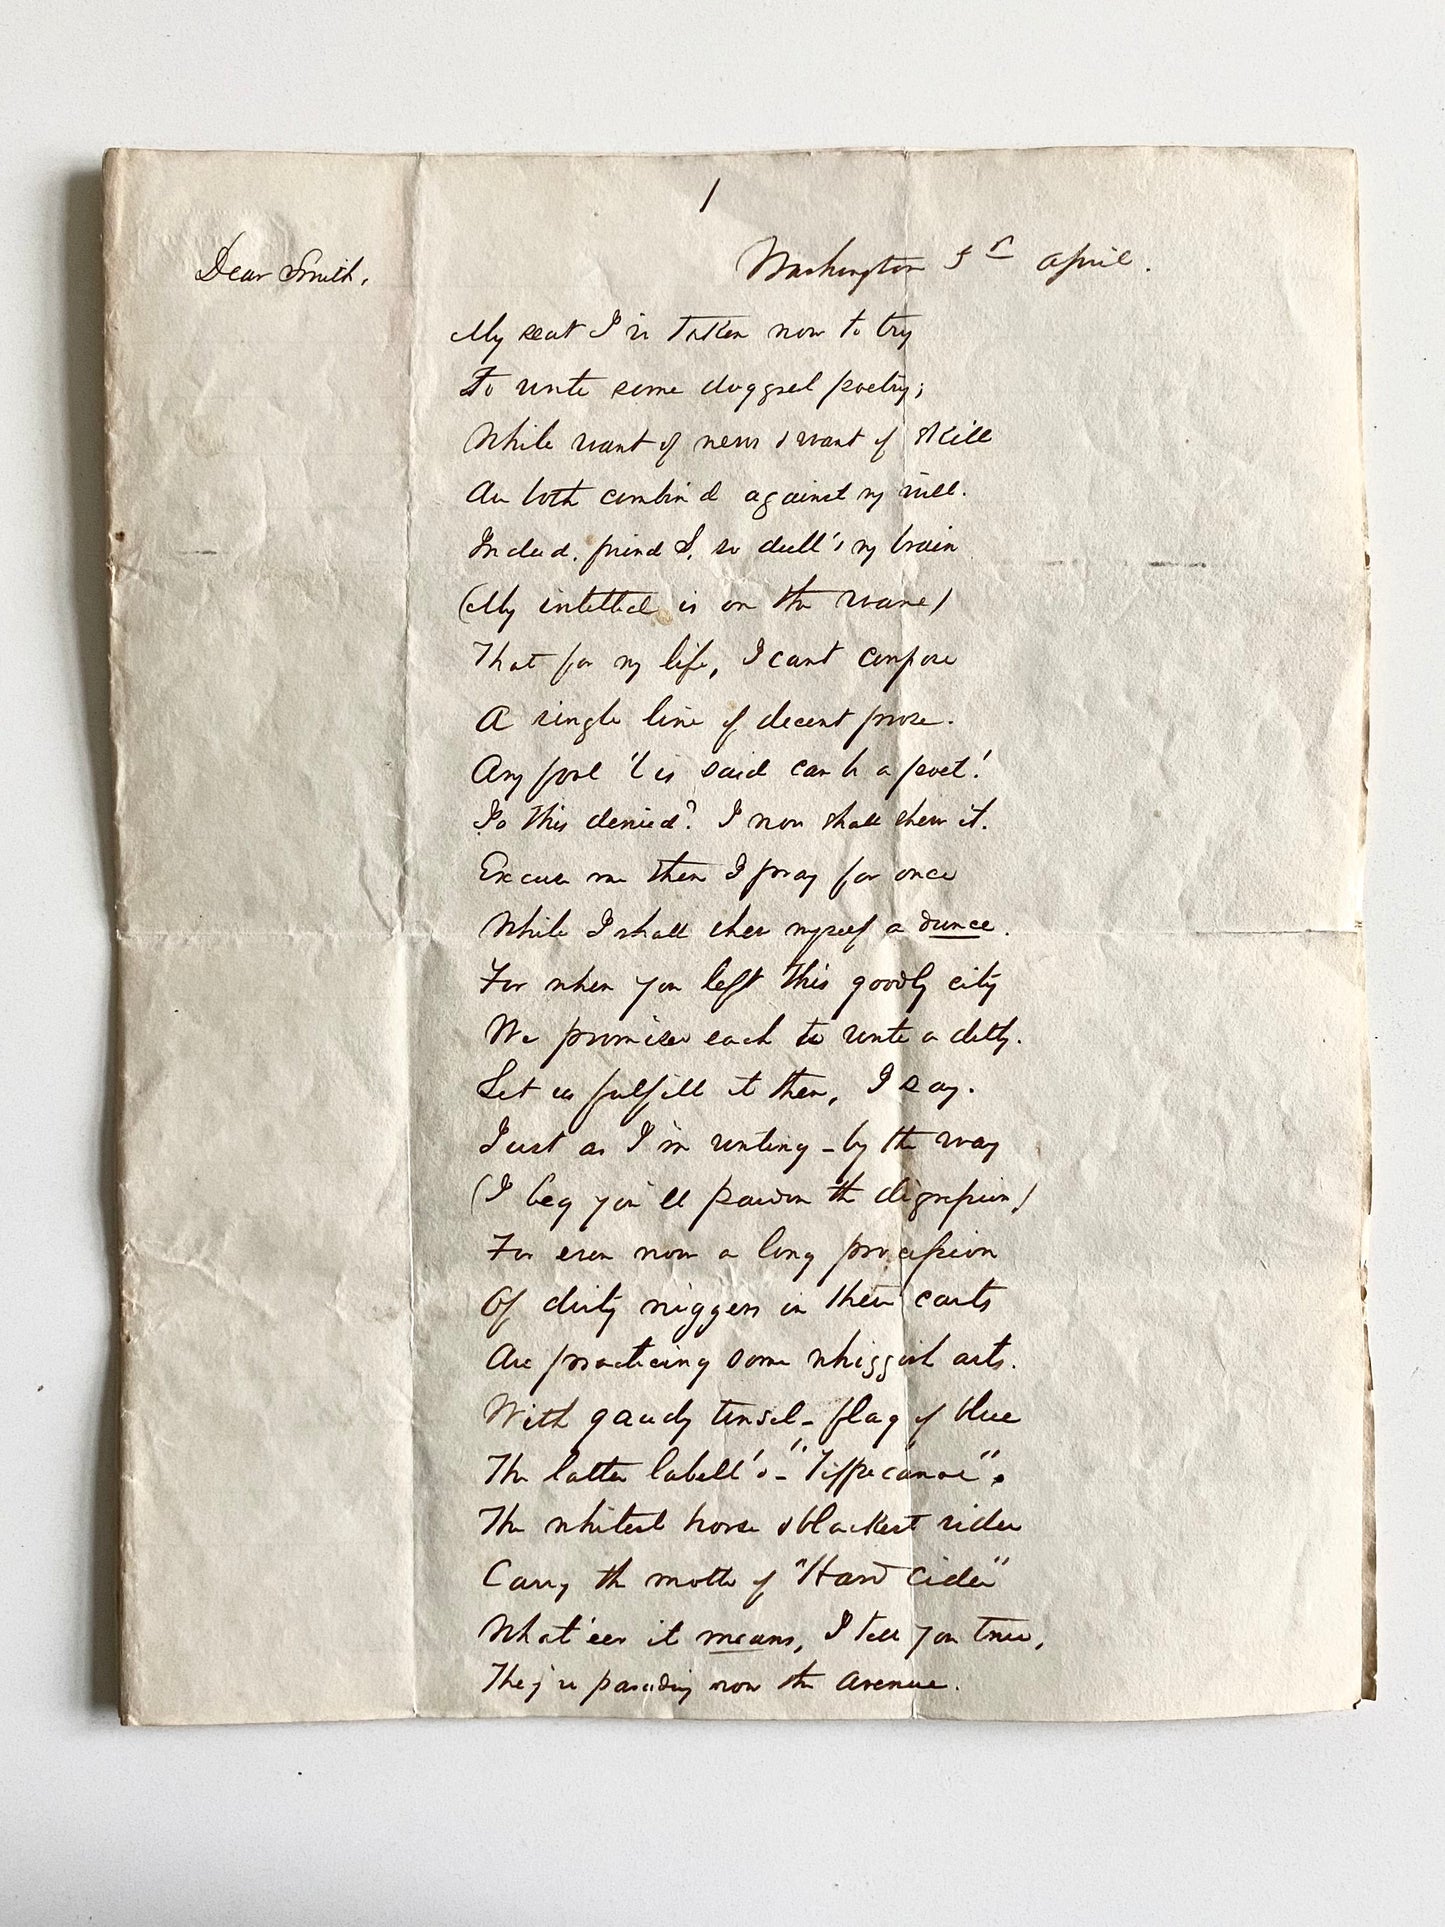 1
Dear Smith,
Washington 5th April.
My seat I've taken now to try
To write some doggrel poetry;
While want of news & want of skill
Are both combin'd against my will.
Indeed, friend S, so dull's my brain
(My intellect is on the wane)
That for my life, I cant compose
A single line of decent prose.
Any fool 'tis said can be a poet!
Is this denied? I now shall shew it.
Excuse me then I pray for once
While I shall shew myself a dunce.
For when you left this goodly city
We promised each to write a ditty.
Let us fulfill it then, I say.
Just as I'm writing - by the way
(I beg you'll pardon the digression)
For even now a long procession
Of dirty niggers in their carts
Are practicing some whiggish arts.
With gaudy tinsel - flag of blue
The latter labell'd - "Tippecanoe".
The whitest horse & blackest rider
Carry the motto of "Hard Cider"
What'eer it means, I tell you true,
They're parading now the avenue.